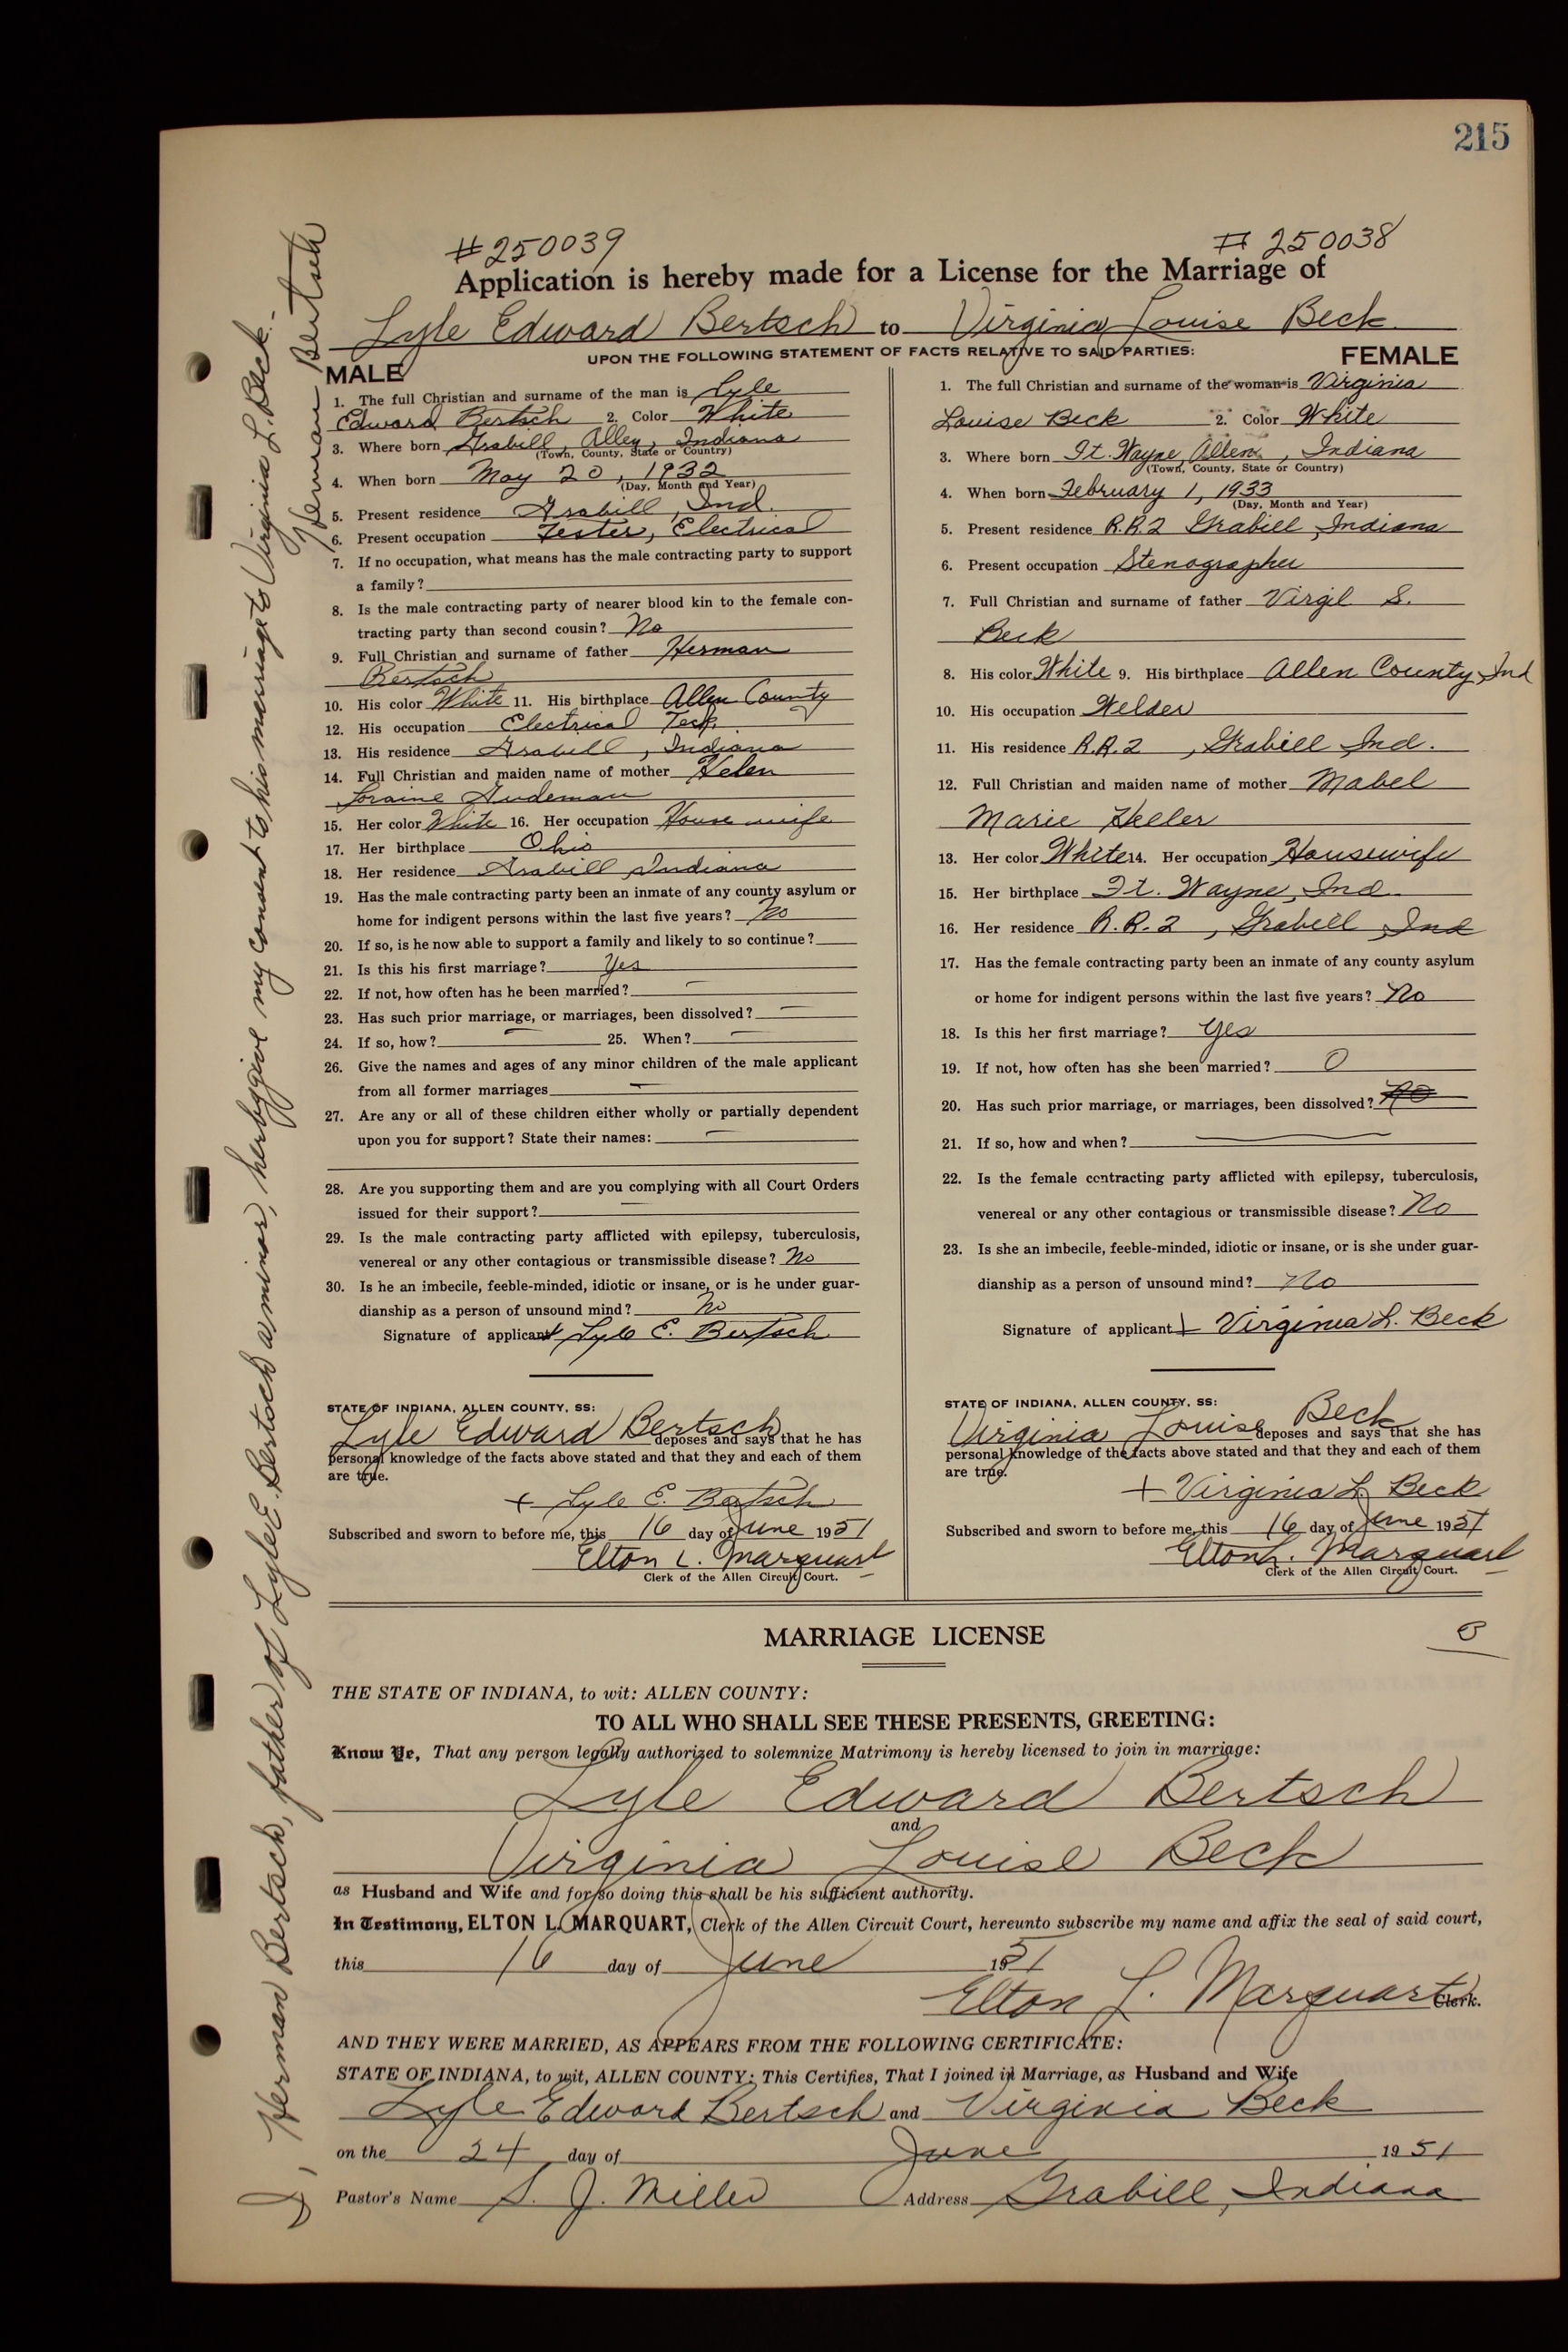 215
#250039 # 250038
Application is hereby made for a License for the Marriage of
Lyle Edward Bertsch to Virginia Louise Beck
UPON THE FOLLOWING STATEMENT OF FACTS RELATIVE TO SAID PARTIES:
MALE
1. The full Christian and surname of the man is Lyle
Edward Bertsch 2. Color White
3. Where born Grabill, Allen, Indiana
(Town, County, State or Country)
4. When born May 20, 1932
(Day, Month and Year)
5. Present residence Grabill, Ind.
6. Present occupation Tester, Electrical
7. If no occupation, what means has the male contracting party to support
a family?
8. Is the male contracting party of nearer blood kin to the female con-
tracting party than second cousin? No
9. Full Christian and surname of father Herman
Bertsch
10. His color White 11. His birthplace Allen County
12. His occupation Electrical Tech.
13. His residence Grabill, Indiana
14. Full Christian and maiden name of mother Helen
Loraine Gudeman
15. Her color White 16. Her occupation Housewife
17. Her birthplace Ohio
18. Her residence Grabill, Indiana
19. Has the male contracting party been an inmate of any county asylum or
home for indigent persons within the last five years? No
20. If so, is he now able to support a family and likely to so continue?
21. Is this his first marriage? Yes
22. If not, how often has he been married? —
23. Has such prior marriage, or marriages, been dissolved? —
24. If so, how? — 25. When? —
26. Give the names and ages of any minor children of the male applicant
from all former marriages —
27. Are any or all of these children either wholly or partially dependent
upon you for support? State their names: —
28. Are you supporting them and are you complying with all Court Orders
issued for their support? —
29. Is the male contracting party afflicted with epilepsy, tuberculosis,
venereal or any other contagious or transmissible disease? No
30. Is he an imbecile, feeble-minded, idiotic or insane, or is he under guar-
dianship as a person of unsound mind? No
Signature of applicant x Lyle E. Bertsch
STATE OF INDIANA, ALLEN COUNTY, SS:
Lyle Edward Bertsch deposes and says that he has
personal knowledge of the facts above stated and that they and each of them
are true.
x Lyle E. Bertsch
Subscribed and sworn to before me, this 16 day of June 1951
Elton L. Marquart
Clerk of the Allen Circuit Court.
FEMALE
1. The full Christian and surname of the woman is Virginia
Louise Beck 2. Color White
3. Where born Ft. Wayne, Allen, Indiana
(Town, County, State or Country)
4. When born February 1, 1933
(Day, Month and Year)
5. Present residence R.R.2 Grabill, Indiana
6. Present occupation Stenographer
7. Full Christian and surname of father Virgil S.
Beck
8. His color White 9. His birthplace Allen County, Ind
10. His occupation Welder
11. His residence R.R.2, Grabill Ind.
12. Full Christian and maiden name of mother Mabel
Marie Heller
13. Her color White 14. Her occupation Housewife
15. Her birthplace Ft. Wayne, Ind
16. Her residence R.R.2, Grabill, Ind
17. Has the female contracting party been an inmate of any county asylum
or home for indigent persons within the last five years? No
18. Is this her first marriage? Yes
19. If not, how often has she been married? 0
20. Has such prior marriage, or marriages, been dissolved? No
21. If so, how and when? —
22. Is the female contracting party afflicted with epilepsy, tuberculosis,
venereal or any other contagious or transmissible disease? No
23. Is she an imbecile, feeble-minded, idiotic or insane, or is she under guar-
dianship as a person of unsound mind? No
Signature of applicant x Virginia L. Beck
STATE OF INDIANA, ALLEN COUNTY, SS:
Virginia Louise Beck deposes and says that she has
personal knowledge of the facts above stated and that they and each of them
are true.
x Virginia L. Beck
Subscribed and sworn to before me, this 16 day of June 1951
Elton L. Marquart
Clerk of the Allen Circuit Court.
MARRIAGE LICENSE
THE STATE OF INDIANA, to wit: ALLEN COUNTY:
TO ALL WHO SHALL SEE THESE PRESENTS, GREETING:
Know Ye, That any person legally authorized to solemnize Matrimony is hereby licensed to join in marriage:
Lyle Edward Bertsch
and
Virginia Louise Beck
as Husband and Wife and for so doing this shall be his sufficient authority.
In Testimony, ELTON L. MARQUART, Clerk of the Allen Circuit Court, hereunto subscribe my name and affix the seal of said court,
this 16 day of June 1951
Elton L. Marquart Clerk.
AND THEY WERE MARRIED, AS APPEARS FROM THE FOLLOWING CERTIFICATE:
STATE OF INDIANA, to wit, ALLEN COUNTY: This Certifies, That I joined in Marriage, as Husband and Wife
Lyle Edward Bertsch and Virginia Beck
on the 24 day of June 1951
Pastor's Name S. J. Miller Address Grabill, Indiana
I, Herman Bertsch, father of Lyle E. Bertsch a minor, herbygive my consent to his marriage to Virginia L. Beck.-
Herman Bertsch